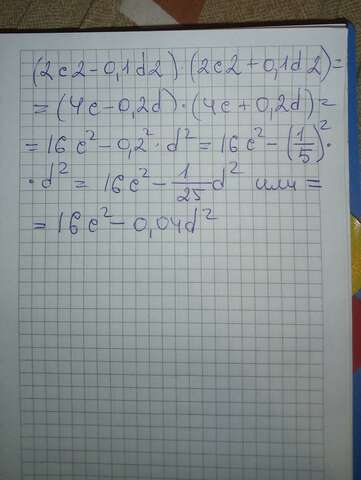 (2c2-0,1d2)·(2c2+0,1d2)=
=(4c-0,2d)·(4c+0,2d)=
=16c²-0,2²·d²=16c²-(1/5)²·
·d²=16c²-1/25d² или =
=16c²-0,04d²